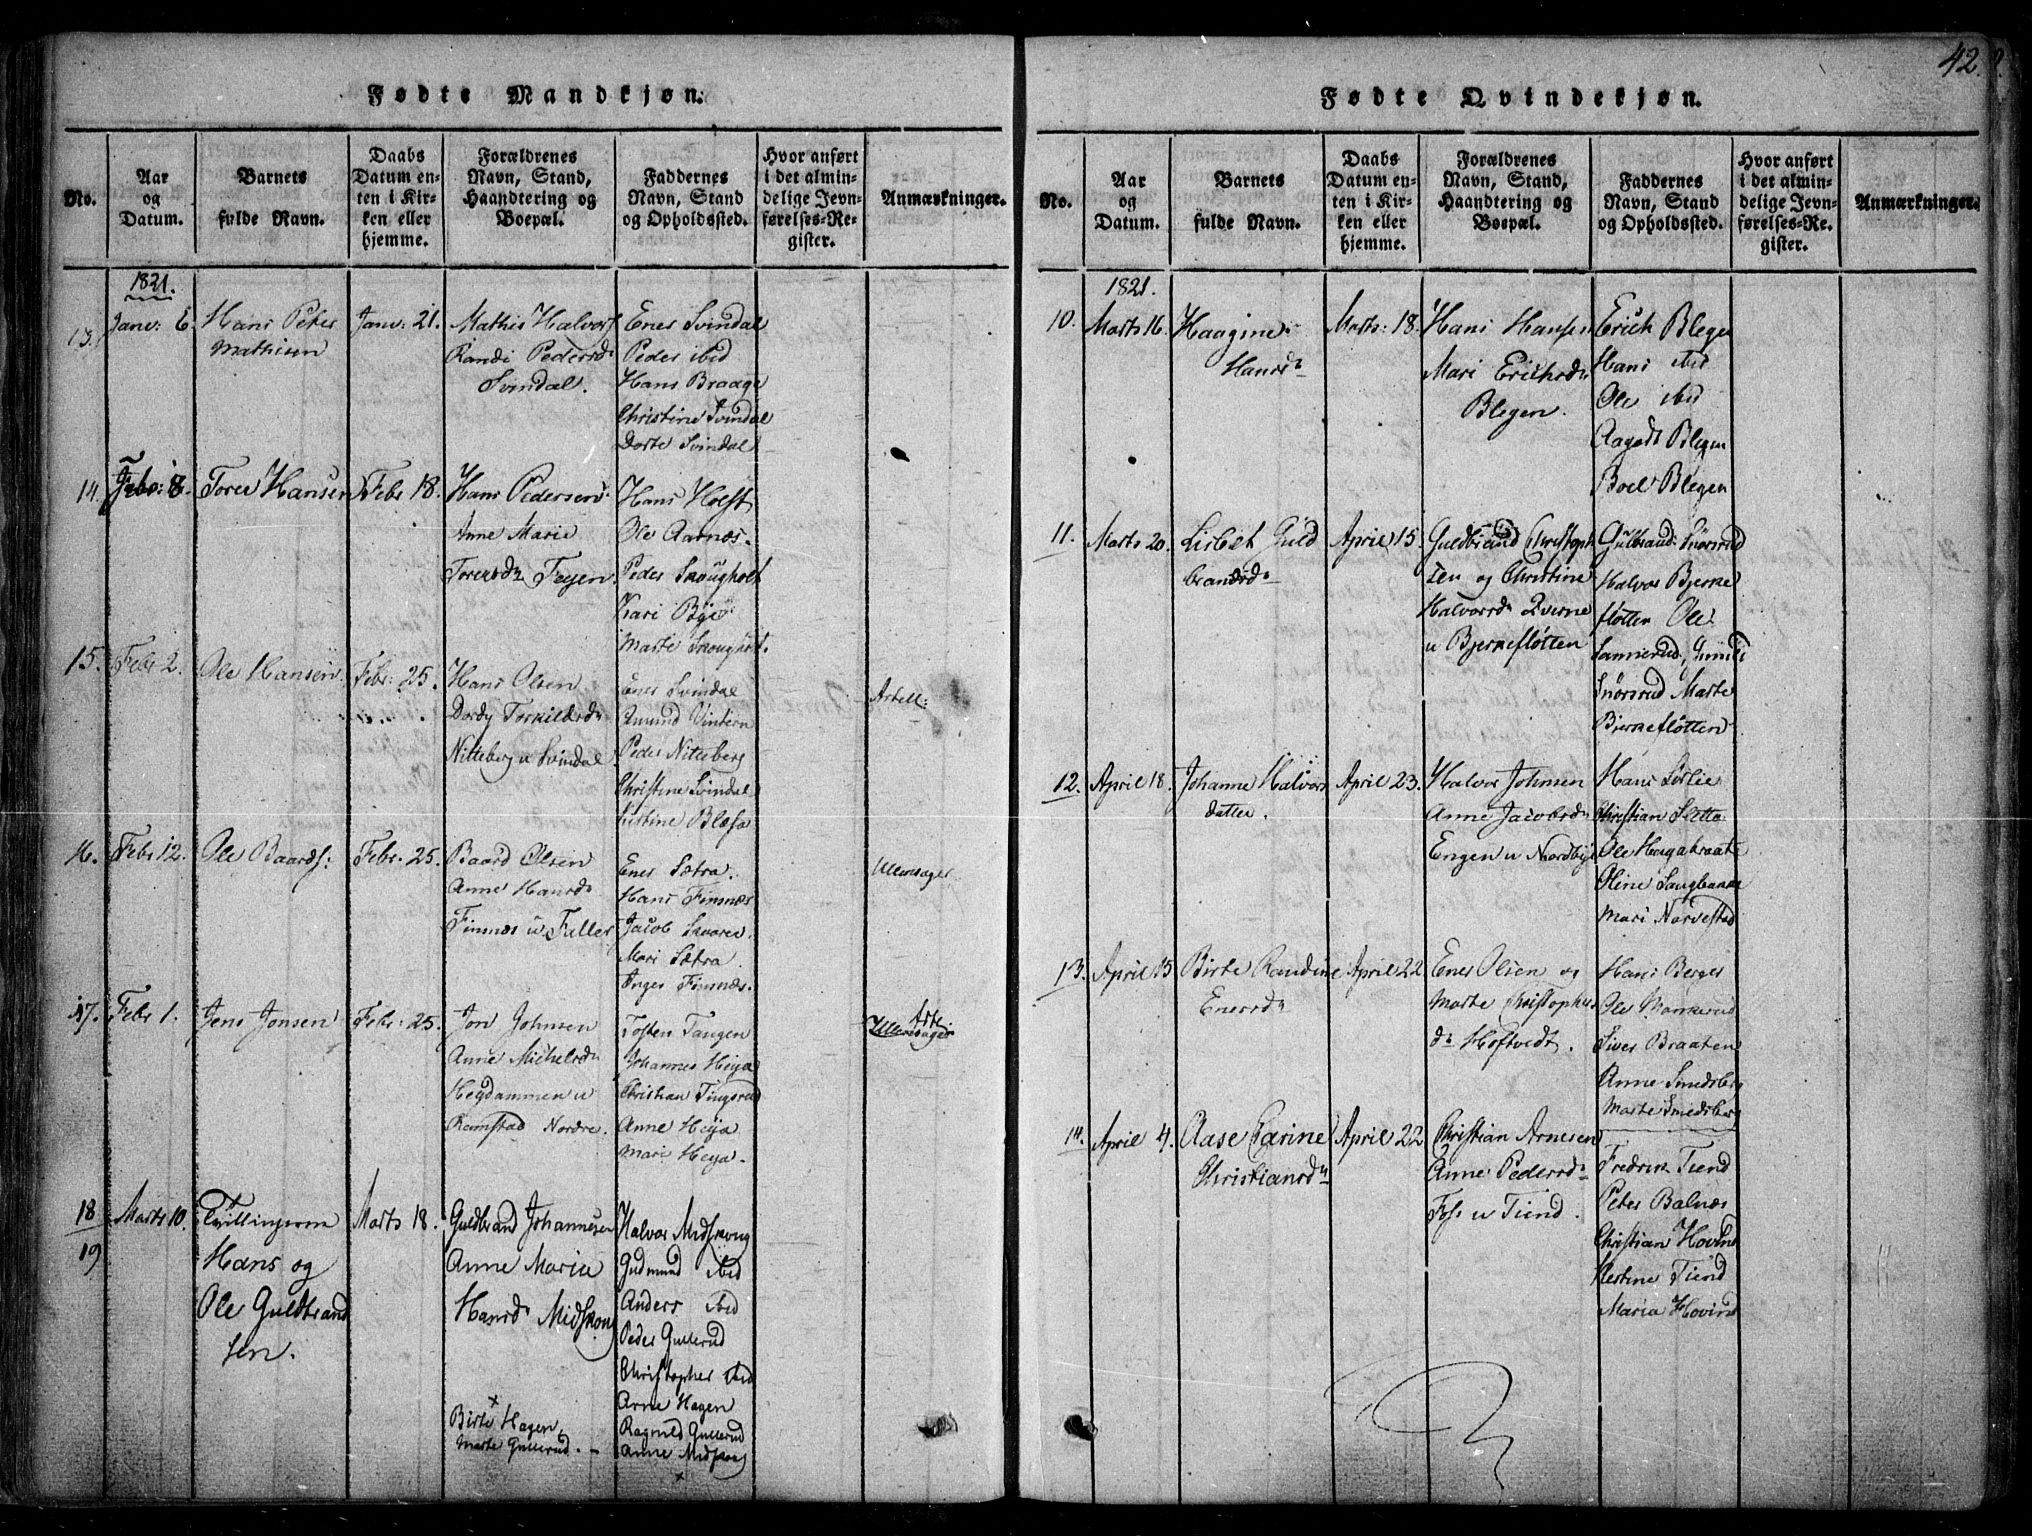 42.
Fødte Mandkjøn.
No.
Aar
og
Datum.
Barnets
fulde Navn.
Daabs
Datum en-
ten i Kir-
ken eller
hjemme.
Forældrenes
Navn, Stand,
Haandtering og
Boepæl.
Faddernes
Navn, Stand
og Opholdssted.
Hvor anført
i det almin-
delige Jevn-
førelses-Re-
gister.
Anmærkninger.
1821.
13.
Janv: 6.
Hans Peter
Mathisen
Janv: 21.
Mathis Halvors
Randi Pedersdr
Svindal.
Ener Svindal
Peder ibid
Hans Braage
Christine Svindal
Dorte Svindal
14.
Febr: 8.
Torer Hansen
Febr 18.
Hans Pedersen
Anne Marie
Torersdr Fegen.
Hans Holst
Ole Aarnæs.
Peder Skougholt
Kari Bye
Marte Skougholt.
15.
Febr 2.
Ole Hansen.
Febr: 25.
Hans Olsen
Dordy Torkildsdr
Nitteberg u Svindal
Ener Svindal
Amund Vintern
Peder Nitteberg
Christine Svindal
Kistine Blæsa
Artell:
16.
Febr 12.
Ole Baards:
Febr: 25.
Baard Olsen
Anne Hansdr
Finnæs u Faller
Ener Sætra.
Hans Finnæs
Jacob Skaarer.
Mari Sætra.
Inger Finnæs.
Ullensager
17.
Febr 1.
Jens Jonsen
Febr: 25.
Jon Johnsen
Anne Michelsdr
Heydammen u
Ramstad Nordre.
Tosten Tangen
Johannes Heija
Christian Tingsrud
Anne Heija
Mari Heija.
Arte
Ullensager
18
19
Marts 10.
Tvillingerne
Hans og
Ole Guldbrand
sen.
Marts 18.
Guldbrand Johannesen
Anne Maria
Hansdr Midskoug
Birte Hagen,
Marte Gullerud. -
Halvor Midskoug
Gudmund ibid
Anders ibid
Peder Gullerud
Christopher ibid
Arne Hagen
Ragnild Gullerud
Anne Midskoug
Fødte Qvindekjøn.
No.
Aar
og
Datum.
Barnets
fulde Navn.
Daabs
Datum en-
ten i Kir-
ken eller
hjemme.
Forældrenes
Navn, Stand,
Haandtering og
Boepæl.
Faddernes
Navn, Stand
og Opholdssted.
Hvor anført
i det almin-
delige Jevn-
førelses-Re-
gister.
Anmærkninger.
1821.
10.
Marts 16.
Haagine
Hansdr
Marts: 18.
Hans Hansen
Mari Erichsdr
Blegen.
Erich Blegen
Hans ibid
Ole ibid
Aagodt Blegen
Boel Blegen
11.
Marts 20.
Lisbet Guld
brandsdr
April 15.
Guldbrand Christoph
sen og Christine
Halvorsdr Qverne
u Bjerkefløtten
Gulbrand Snørsrud
Halvor Bjerke
fløtten Ole
Sannerud,
Snørsrud Marte
Bjerkefløtten
12.
April 18.
Johanne Halvors
datter.
April 23.
Halvor Johnsen
Anne Jacobsdr
Engen u Nordbye
Hans Sørlie
Christian Sætta
Ole Hagabraate
Oline Langbakke
Mari Narvestad
13.
April 15
Birte Randine
Enersdr
April 22
Ener Olsen og
Marte Christophers
dr Hoftvedt.
Hans Berger
Ole Monkerud
Siver Braaten
Anne Smedsberg
Marte Smedsberg
14.
April 4.
Aase Carine
Christiansdr
April 22
Christian Arnesen
Anne Pedersdr
Foss u Tiend.
Fredrik Tiend
Peter Balnæs
Christian Hovind
Kestine Tiend
Maria Hovind